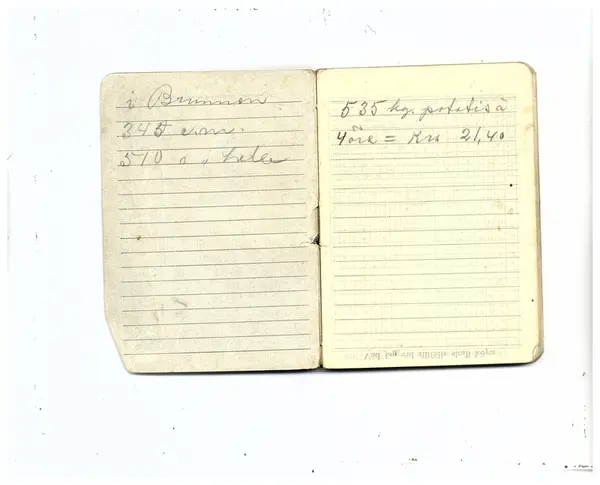 i Brunnen
345 c.m.
510
535 kg. potatis à
4 öre = Kr. 21,40